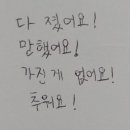 다 졌어요!
말했어요!
가진 게 없어요!
추워요!